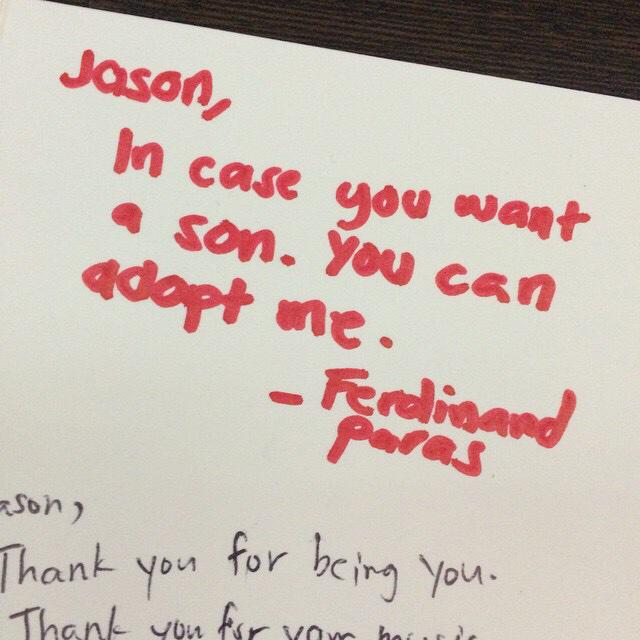 Jason,
In case you want
a son. you can
adopt me.
- Ferdinand
paras
ason,
Thank you for being you.
Thank you for your